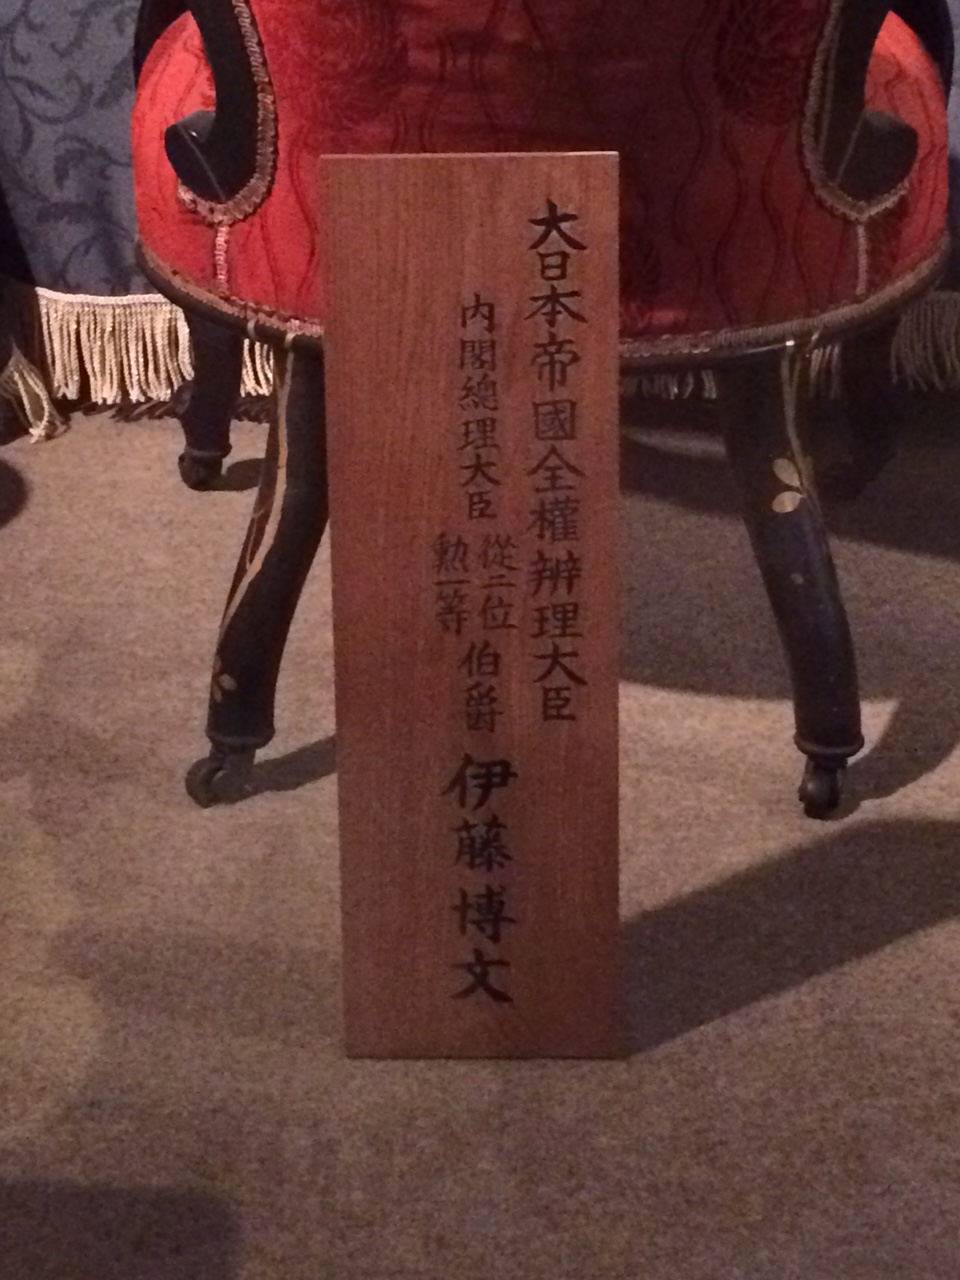 大日本帝國全權辨理大臣
内閣總理大臣
從二位
勲一等
伯爵
伊藤博文